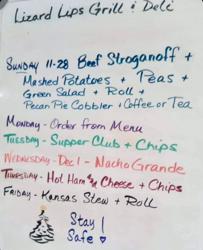 Lizard Lips Grill & Deli
Sunday 11-28 Beef Stroganoff +
Mashed Potatoes + Peas +
Green Salad + Roll +
Pecan Pie Cobbler + Coffee or Tea
Monday - Order from Menu
Tuesday - Supper Club + Chips
Wednesday - Dec 1 - Nacho Grande
Thursday - Hot Ham & Cheese + Chips
Friday - Kansas Stew + Roll
Stay
Safe